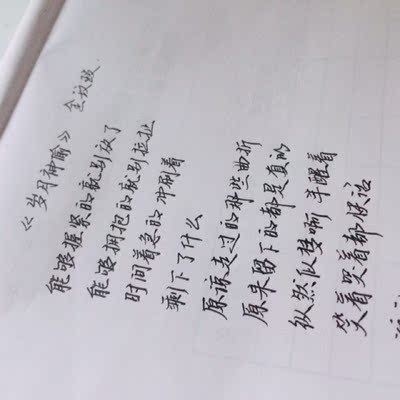 《岁月神偷》 金玟岐
能够握紧的就别放了
能够拥抱的就别拉扯
时间着急的冲刷着
剩下了什么
原谅走过的那些曲折
原来留下的都是真的
纵然似梦啊 半醒着
笑着哭着都快活